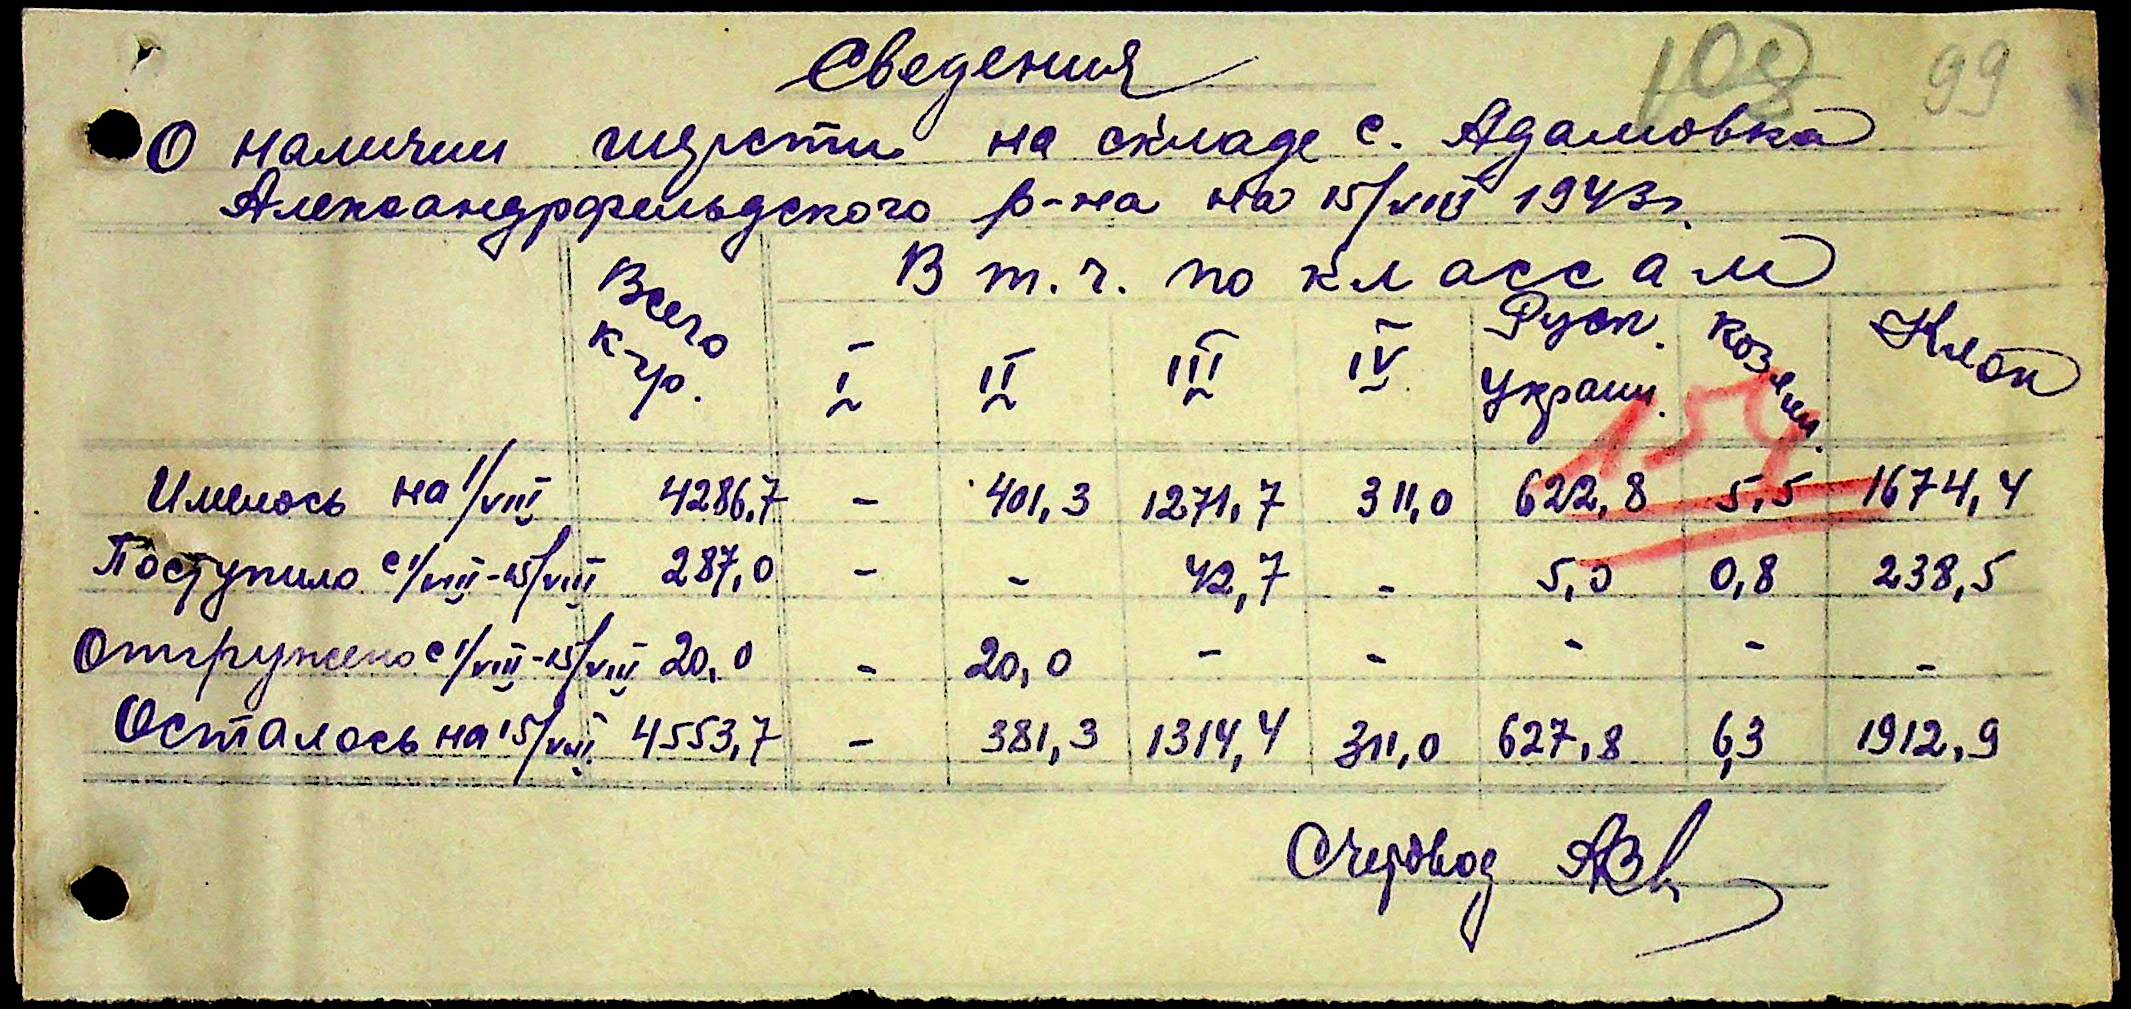 Сведения
108 99
О наличии шерсти на складе с. Адамовка
Александрфельдского р-на на 15/VIII 1943г.
Всего кгр. В т.ч. по классам
I II III IV Русск. Украин. Козлин. Клок
159
Имелось на 1/VIII 4286,7 - 401,3 1271,7 311,0 622,8 5,5 1674,4
Поступило с 1/VIII-15/VIII 287,0 - - 42,7 - 5,0 0,8 238,5
Отгружено с 1/VIII-15/VIII 20,0 - 20,0 - - - - -
Осталось на 15/VIII 4553,7 - 381,3 1314,4 311,0 627,8 6,3 1912,9
Счетовод